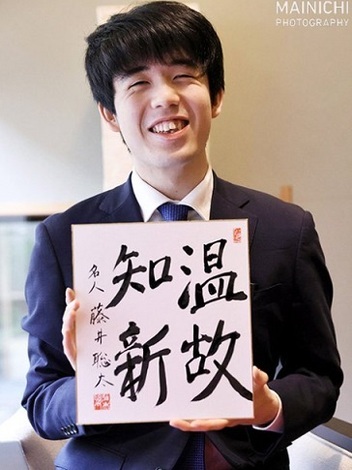 MAINICHI
PHOTOGRAPHY
温故
知新
名人 藤井聡太